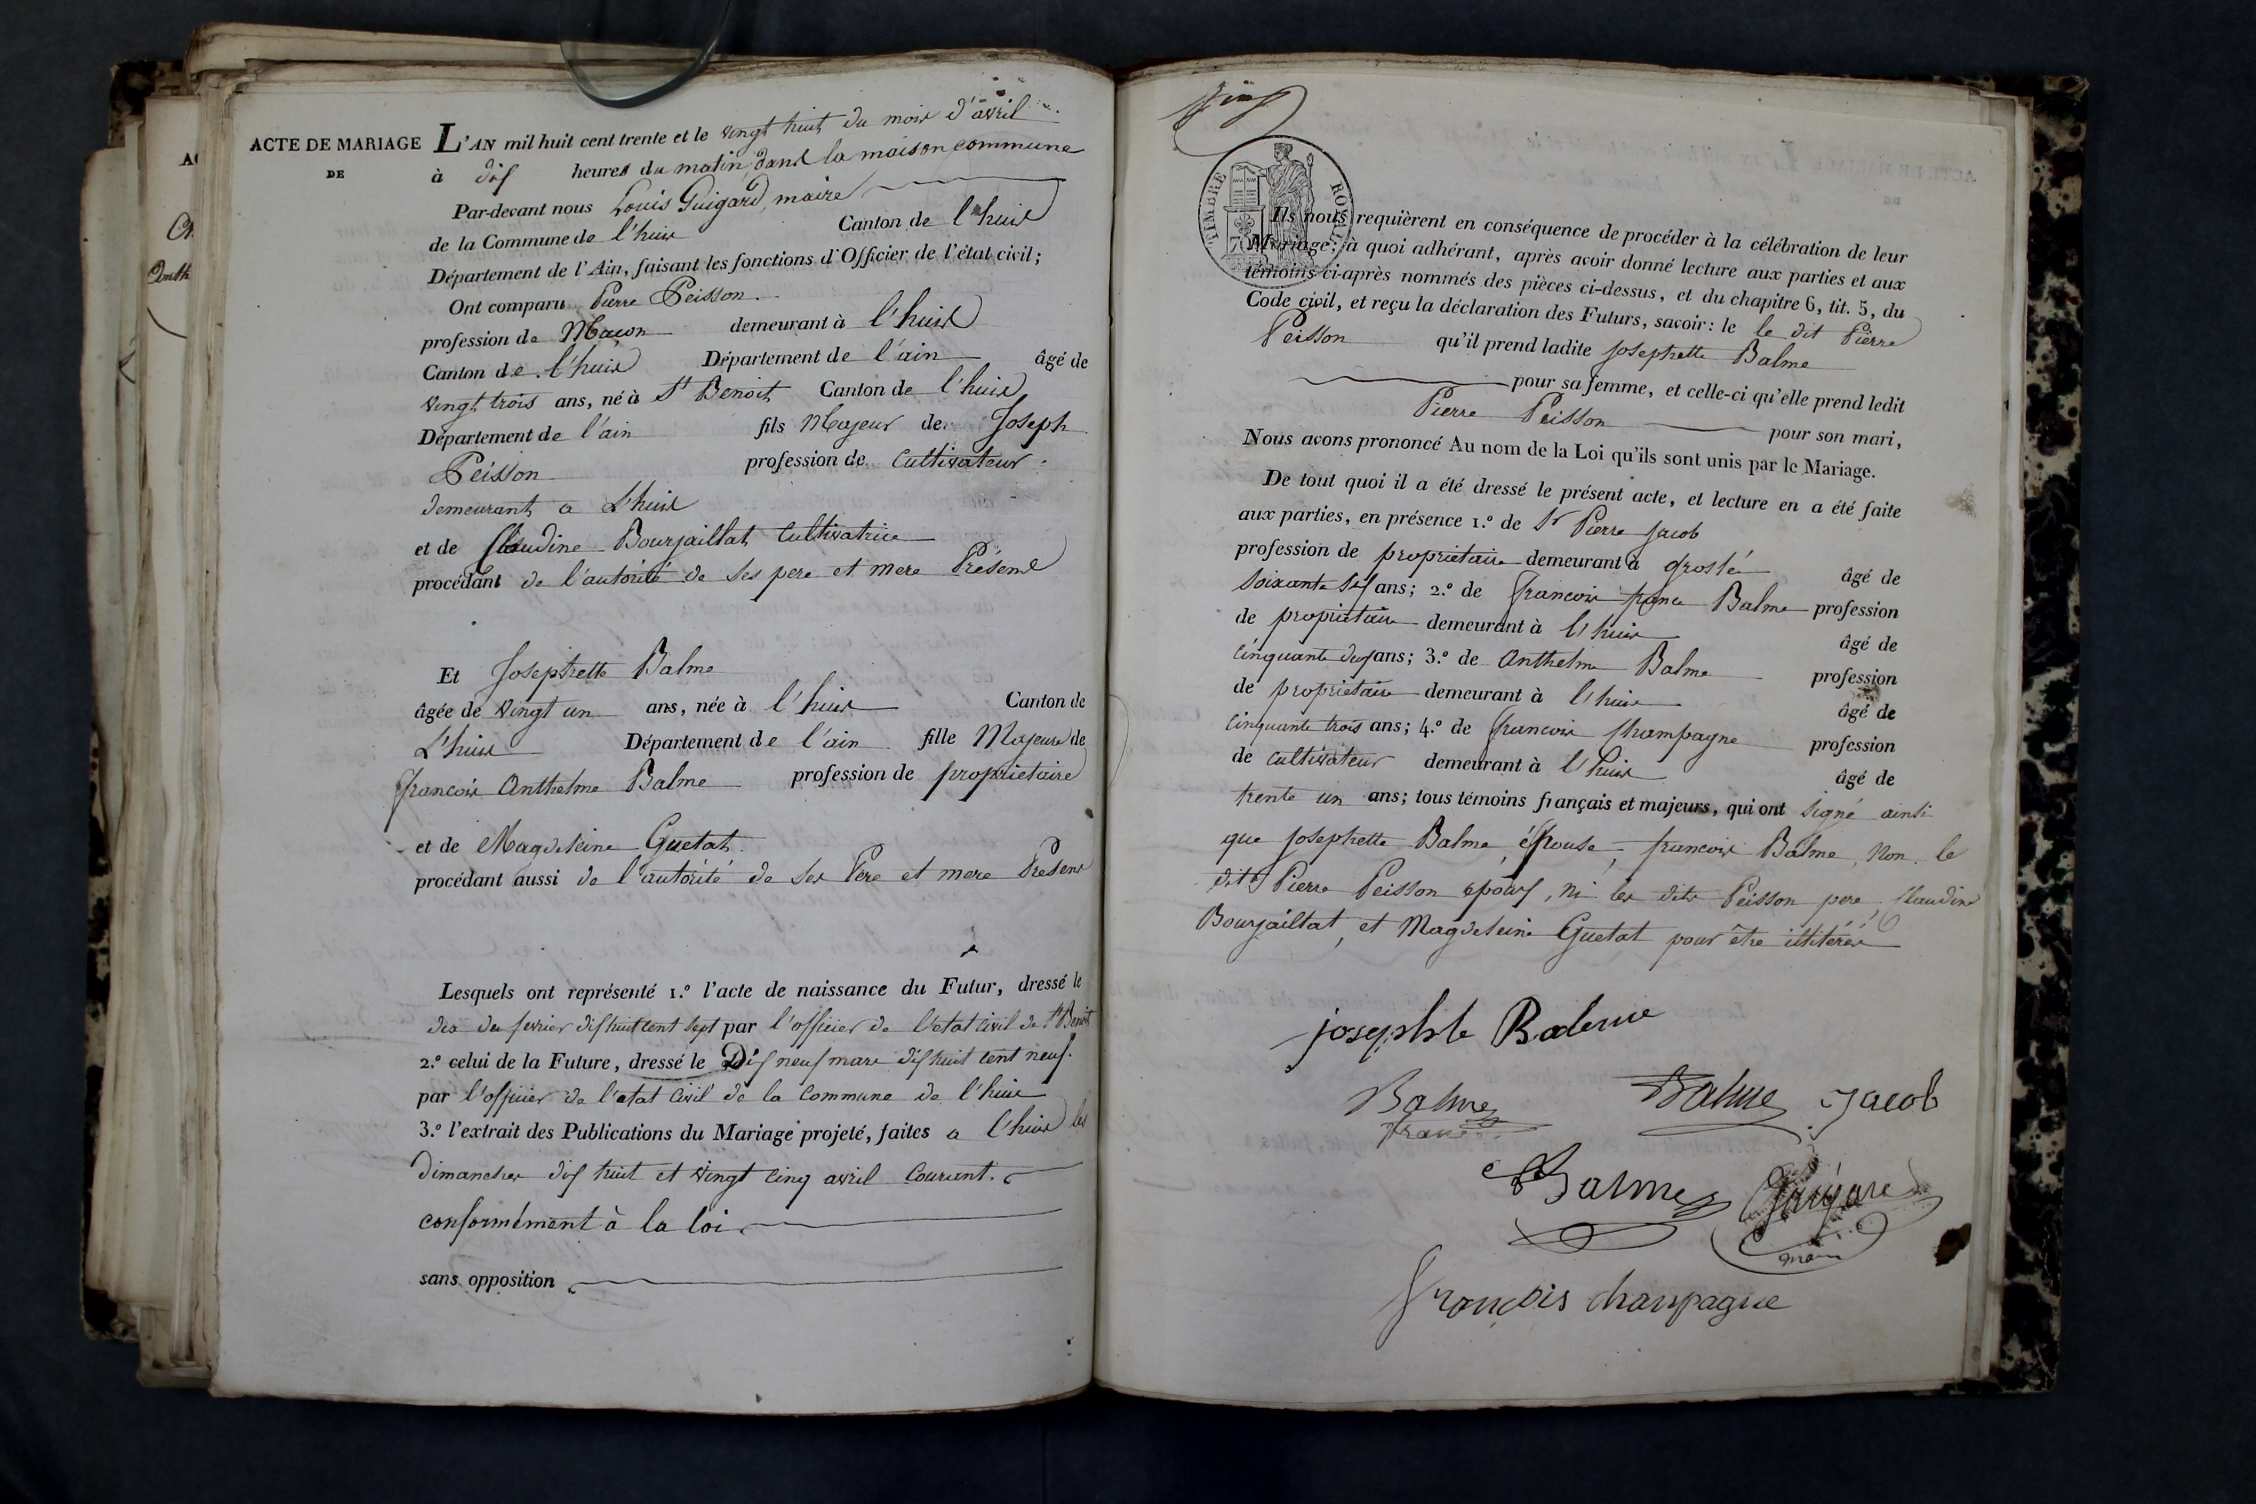 ACTE DE MARIAGE
DE
L'AN mil huit cent trente et le vingt huit du mois d'avril
à dix heures du matin, dans la maison commune
Par-devant nous Louis Guigard, maire
de la Commune de l'huis Canton de l'huis
Département de l'Ain, faisant les fonctions d'Officier de l'état civil;
Ont comparu Pierre Peisson
profession de Maçon demeurant à l'huis
Canton de l'huis Département de l'ain âgé de
vingt trois ans, né à St Benoit Canton de l'huis
Département de l'ain fils Majeur de Joseph
Peisson profession de Cultivateur
demeurant a L'huis
et de Claudine Bourjaillat Cultivatrice
procédant de l'autorité de ses pere et mere Présens
Et Josephette Balme
âgée de vingt un ans, née à l'huis Canton de
L'huis Département de l'ain fille Majeure de
francois Anthelme Balme profession de proprietaire
et de Magdeleine Guetat
procédant aussi de l'autorité de ses Pere et mere Présens
Lesquels ont représenté 1.º l'acte de naissance du Futur, dressé le
dix huit cent sept par l'officier de l'etat civil de St Benoit
2.º celui de la Future, dressé le Dix neuf mars dix huit cent neuf
par l'officier de l'etat civil de la Commune de l'huis
3.º l'extrait des Publications du Mariage projeté, faites a l'huis les
dimanches dix huit et vingt cinq avril Courant.
conformément à la loi
sans opposition
TIMBRE ROYAL
Ils nous requièrent en conséquence de procéder à la célébration de leur
Mariage; à quoi adhérant, après avoir donné lecture aux parties et aux
témoins ci-après nommés des pièces ci-dessus, et du chapitre 6, tit. 5, du
Code civil, et reçu la déclaration des Futurs, savoir: le le dit Pierre
Peisson qu'il prend ladite Josephette Balme
pour sa femme, et celle-ci qu'elle prend ledit
Pierre Peisson pour son mari,
Nous avons prononcé Au nom de la Loi qu'ils sont unis par le Mariage.
De tout quoi il a été dressé le présent acte, et lecture en a été faite
aux parties, en présence 1.º de Sr Pierre Jacob
profession de proprietaire demeurant à groslé âgé de
soixante six ans; 2.º de francois Balme profession
de proprietaire demeurant à l'huis âgé de
cinquante deux ans; 3.º de Anthelme Balme profession
de proprietaire demeurant à l'huis âgé de
cinquante trois ans; 4.º de francois Champagne profession
de cultivateur demeurant à l'huis âgé de
trente un ans; tous témoins français et majeurs, qui ont signé ainsi
que Josephette Balme, épouse, francois Balme, Non le
dit Pierre Peisson époux, ni les dits Peisson pere, Claudine
Bourjaillat, et Magdeleine Guetat pour être illitérés
Balme
Balme Jacob
Balme Guigard
maire
françois champagne